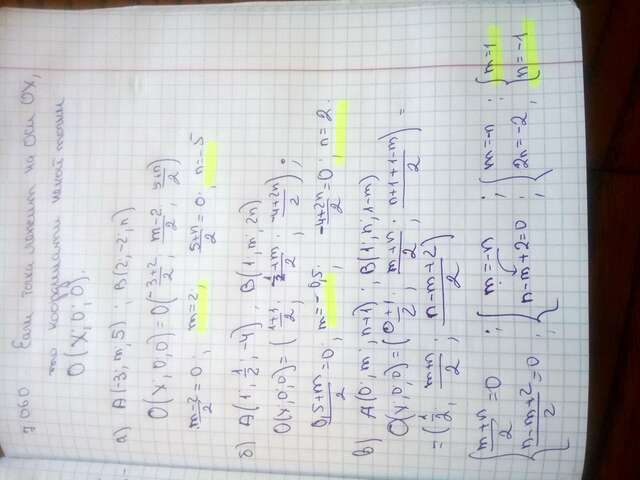 7060 Если точка лежит на оси ОХ,
то координаты такой точки
O(x; 0; 0).
а) A(-3; m; 5); B(2; -2; n)
O(x; 0; 0) = O(-3+2/2; m-2/2; 5+n/2)
m-2/2 = 0; m = 2; 5+n/2 = 0; n = -5
б) A(1; 1/2; -4); B(1; m; 2n)
O(x; 0; 0) = (1+1/2; 1/2+m/2; -4+2n/2);
0,5+m/2 = 0; m = -0,5; -4+2n/2 = 0; n = 2.
в) A(0; m; n+1); B(1; n; 1-m)
O(x; 0; 0) = (0+1/2; m+n/2; n+1+1-m/2) =
= (1/2; m+n/2; n-m+2/2)
{m+n/2 = 0; n-m+2/2 = 0; {m = -n; n-m+2 = 0; {m = -n; 2n = -2; {m = 1; n = -1